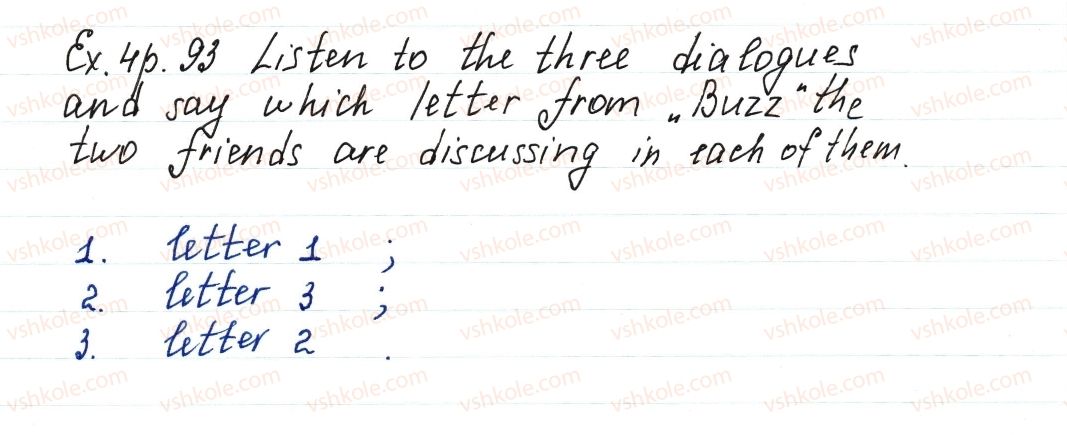 Ex. 4p. 93 Listen to the three dialogues
and say which letter from „Buzz“ the
two friends are discussing in each of them.
1. letter 1 ;
2. letter 3 ;
3. letter 2 .